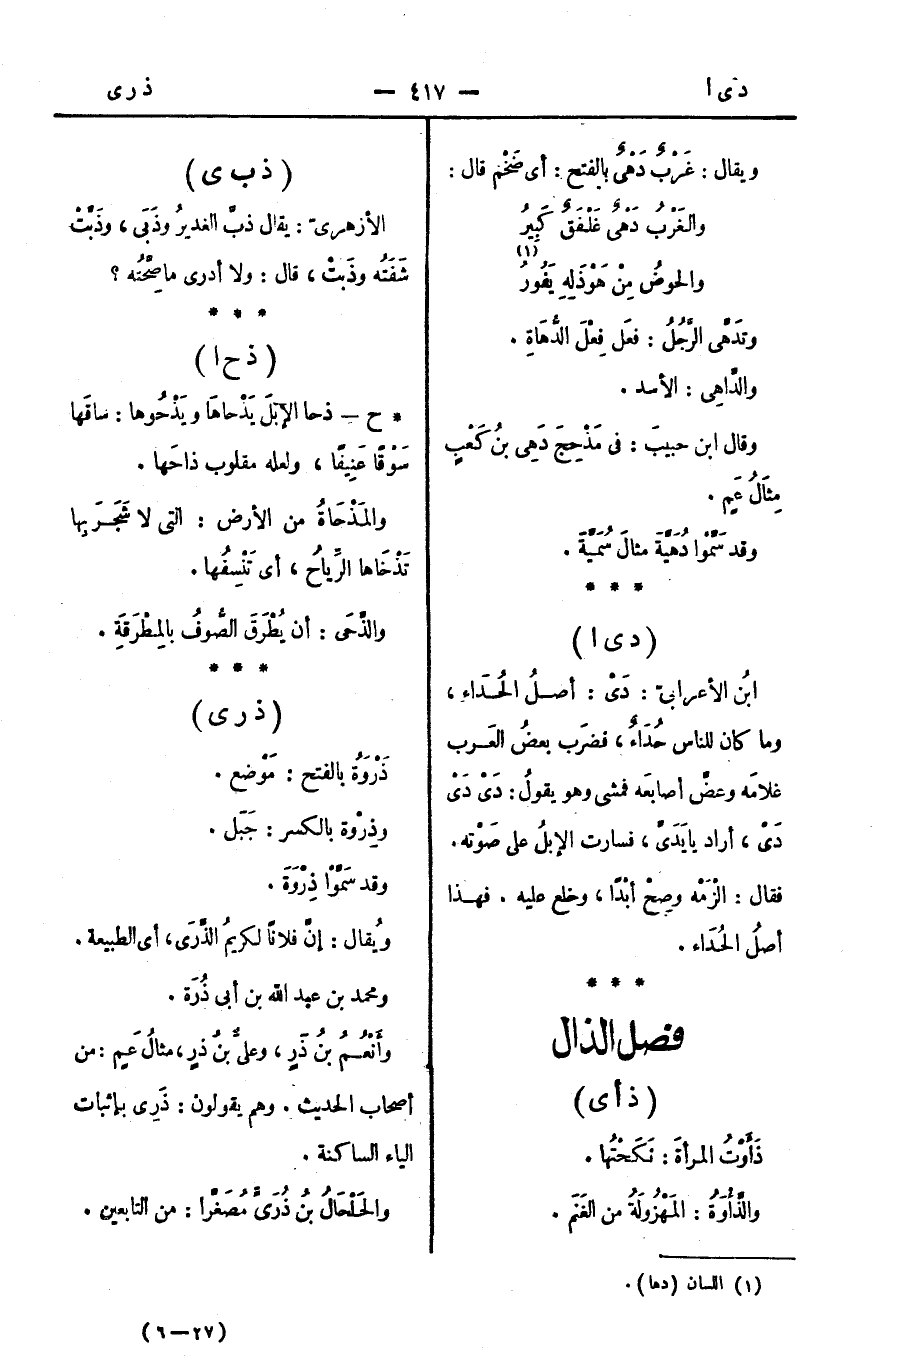 دى ا — ٤١٧ — ذرى
ويقال : غَرْبٌ دَهْىٌ بالفتح : أى ضَخْم قال :
والغَرْبُ دَهْىٌ غَلْفَقٌ كَبِيرُ
والحوضُ مِنْ هَوْذَلِهِ يَفُورُ (١)
وتَدَهَّى الرَّجُلُ : فعَل فِعْلَ الدُّهَاةِ .
والدَّاهِى : الأسد .
وقال ابن حبيبَ : فى مَذْحِجَ دَهِى بنُ كَعْبٍ
مِثالُ عَمٍ .
وقد سَمَّوْا دُهَيَّةَ مثالَ سُمَيَّةَ .
* * *
( دى ا )
ابنُ الأعرابىّ : دَىْ : أصلُ الحُدَاء ،
وما كان للناس حُدَاءٌ ، فضَرب بعضُ العَرب
غلامَه وعضَّ أصابعَه فمشى وهو يقولُ : دَىْ دَىْ
دَىْ ، أراد يايَدَىَّ ، فسارت الإبلُ على صَوْته .
فقال : الْزَمْه وصِحْ أبْدًا ، وخلع عليه . فهذا
أصلُ الحُدَاء .
* * *
فصل الذال
( ذ أ ى )
ذَأَوْتُ المرأةَ : نَكَحْتُها .
والذَّأْوَةُ : المَهْزُولَةُ من الغَنَم .
(١) اللسان (دها) .
( ذ ب ى )
الأزهرىّ : يقال ذبَّ الغديرُ وذَبَى ، وذَبَّتْ
شَفَتُه وذَبَتْ ، قال : ولا أدرى ما صِحَّتُه ؟
* * *
( ذ ح ا )
* ح ـ ذحا الإبَلَ يَذْحاهَا ويَذْحُوها : ساقَها
سَوْقًا عَنِيفًا ، ولعله مقلوب ذاحَها .
والمَذْحَاةُ من الأرض : التى لا شَجَرَ بِها
تَذْحَاها الرِّياحُ ، أى تَنْسِفُها .
والذَّحَى : أن يُطْرَقَ الصُّوفُ بالمِطْرَقَةِ .
* * *
( ذ ر ى )
ذَرْوَةُ بالفتح : مَوْضع .
وذِرْوة بالكسر : جَبَل .
وقد سَمَّوْا ذِرْوَةَ .
ويُقال : إنَّ فلانًا لكريمُ الذَّرَى ، أى الطبيعة .
ومحمد بن عبد الله بن أبى ذُرَة .
وأَنْعُمُ بنُ ذَرٍ ، وعلىُّ بنُ ذرٍ ، مثالُ عَمٍ : من
أصحاب الحديث . وهم يقولون : ذَرِى بإثبات
الياء الساكنة .
والحَلْحَالُ بنُ ذُرَىٍّ مُصَغَّرا : من التابعين .
(٢٧—٦)